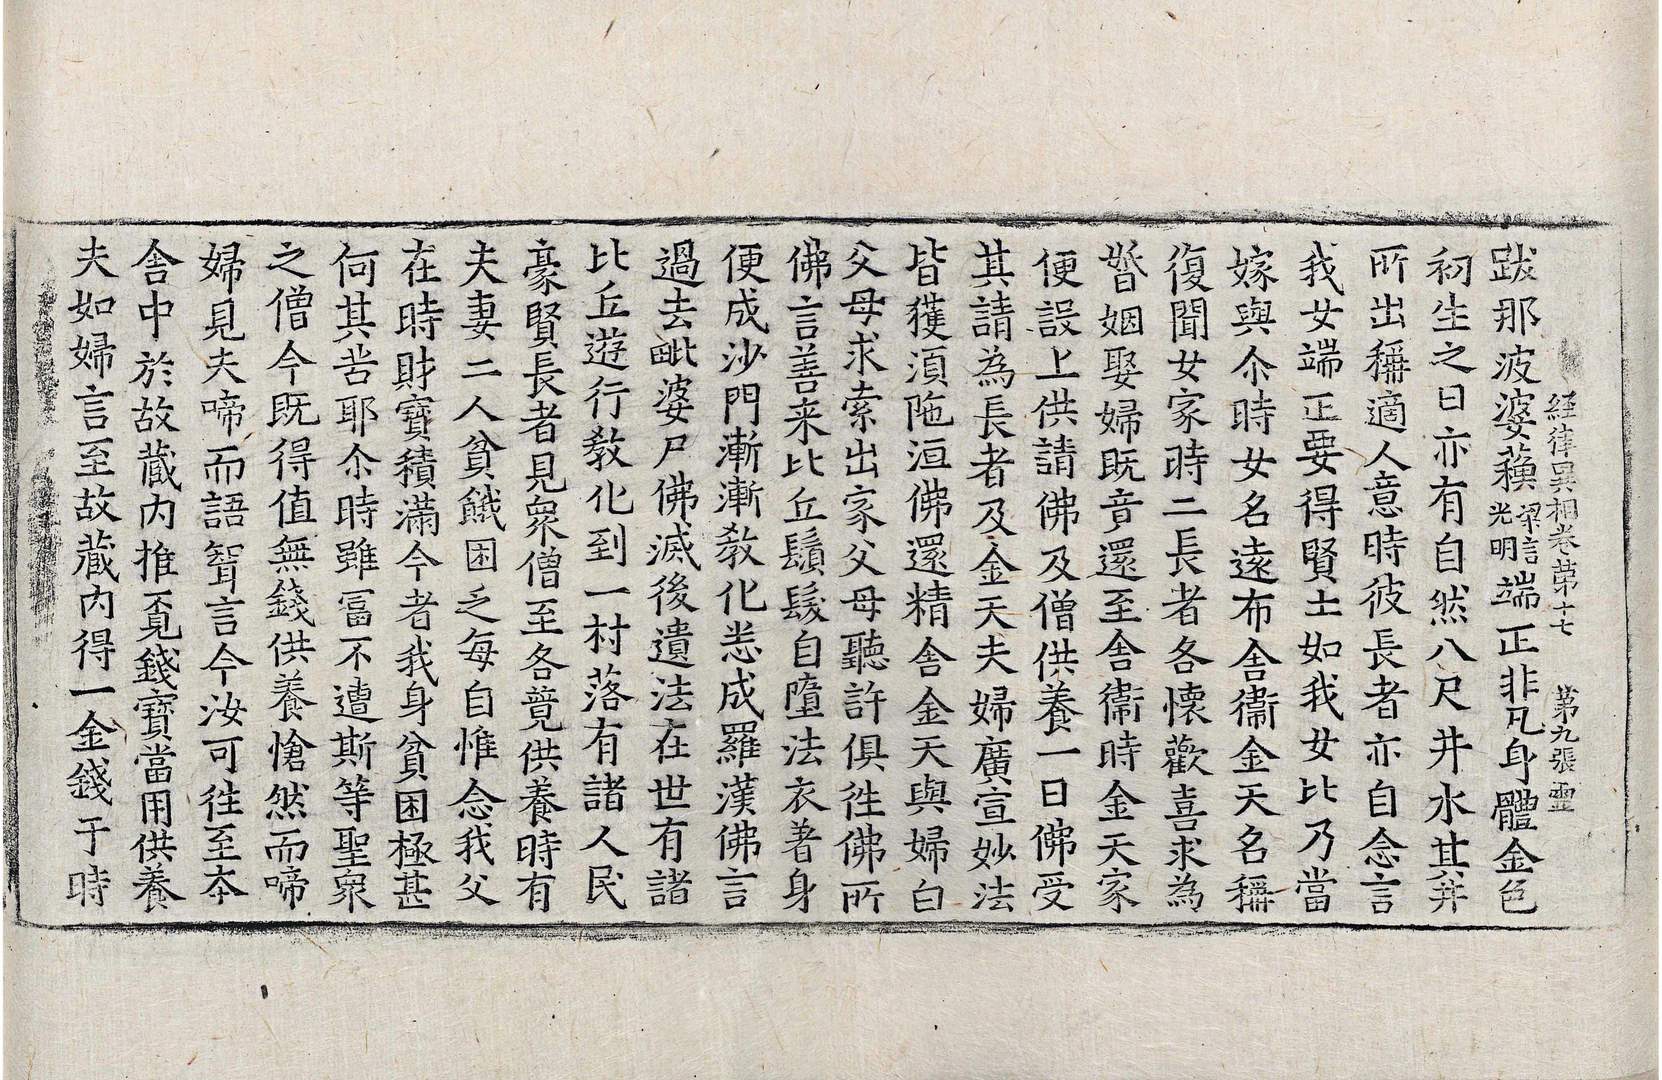 経律異相卷第十七 第九張 霊
跋那波婆蘓梁言光明端正非凡身體金色
初生之日亦有自然八尺井水其井
所出稱適人意時彼長者亦自念言
我女端正要得賢士如我女比乃當
嫁與尒時女名遠布舍衞金天名稱
復聞女家時二長者各懷歡喜求為
㛰姻娶婦既音還至舍衞時金天家
便設上供請佛及僧供養一日佛受
其請為長者及金天夫婦廣宣妙法
皆獲須陁洹佛還精舍金天與婦白
父母求索出家父母聽許俱徃佛所
佛言善来比丘鬚髮自墮法衣著身
便成沙門漸漸敎化悉成羅漢佛言
過去毗婆尸佛滅後遺法在世有諸
比丘遊行敎化到一村落有諸人民
豪賢長者見衆僧至各竟供養時有
夫妻二人貧餓困乏每自惟念我父
在時財寶積滿今者我身貧困極甚
何其苦耶尒時雖冨不遭斯等聖衆
之僧今既得值無錢供養愴然而啼
婦見夫啼而語聟言今汝可徃至本
舍中於故藏内推覓錢寶當用供養
夫如婦言至故藏内得一金錢于時